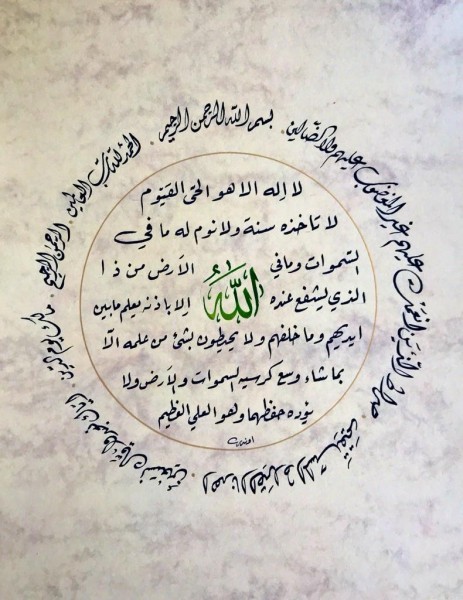 بسم الله الرحمن الرحيم
الحمد لله رب العالمين
الرحمن الرحيم
مالك يوم الدين
اياك نعبد واياك نستعين
اهدنا الصراط المستقيم
صراط الذين انعمت عليهم غير المغضوب عليهم ولا الضالين
لا إله الا هو الحي القيوم
لا تاخذه سنة ولا نوم له ما في
السموات وما في الأرض من ذا
الذي يشفع عنده الا باذنه يعلم ما بين
الله
ايديهم وما خلفهم ولا يحيطون بشئ من علمه الا
بما شاء وسع كرسيه السموات والأرض ولا
يؤده حفظهما وهو العلي العظيم